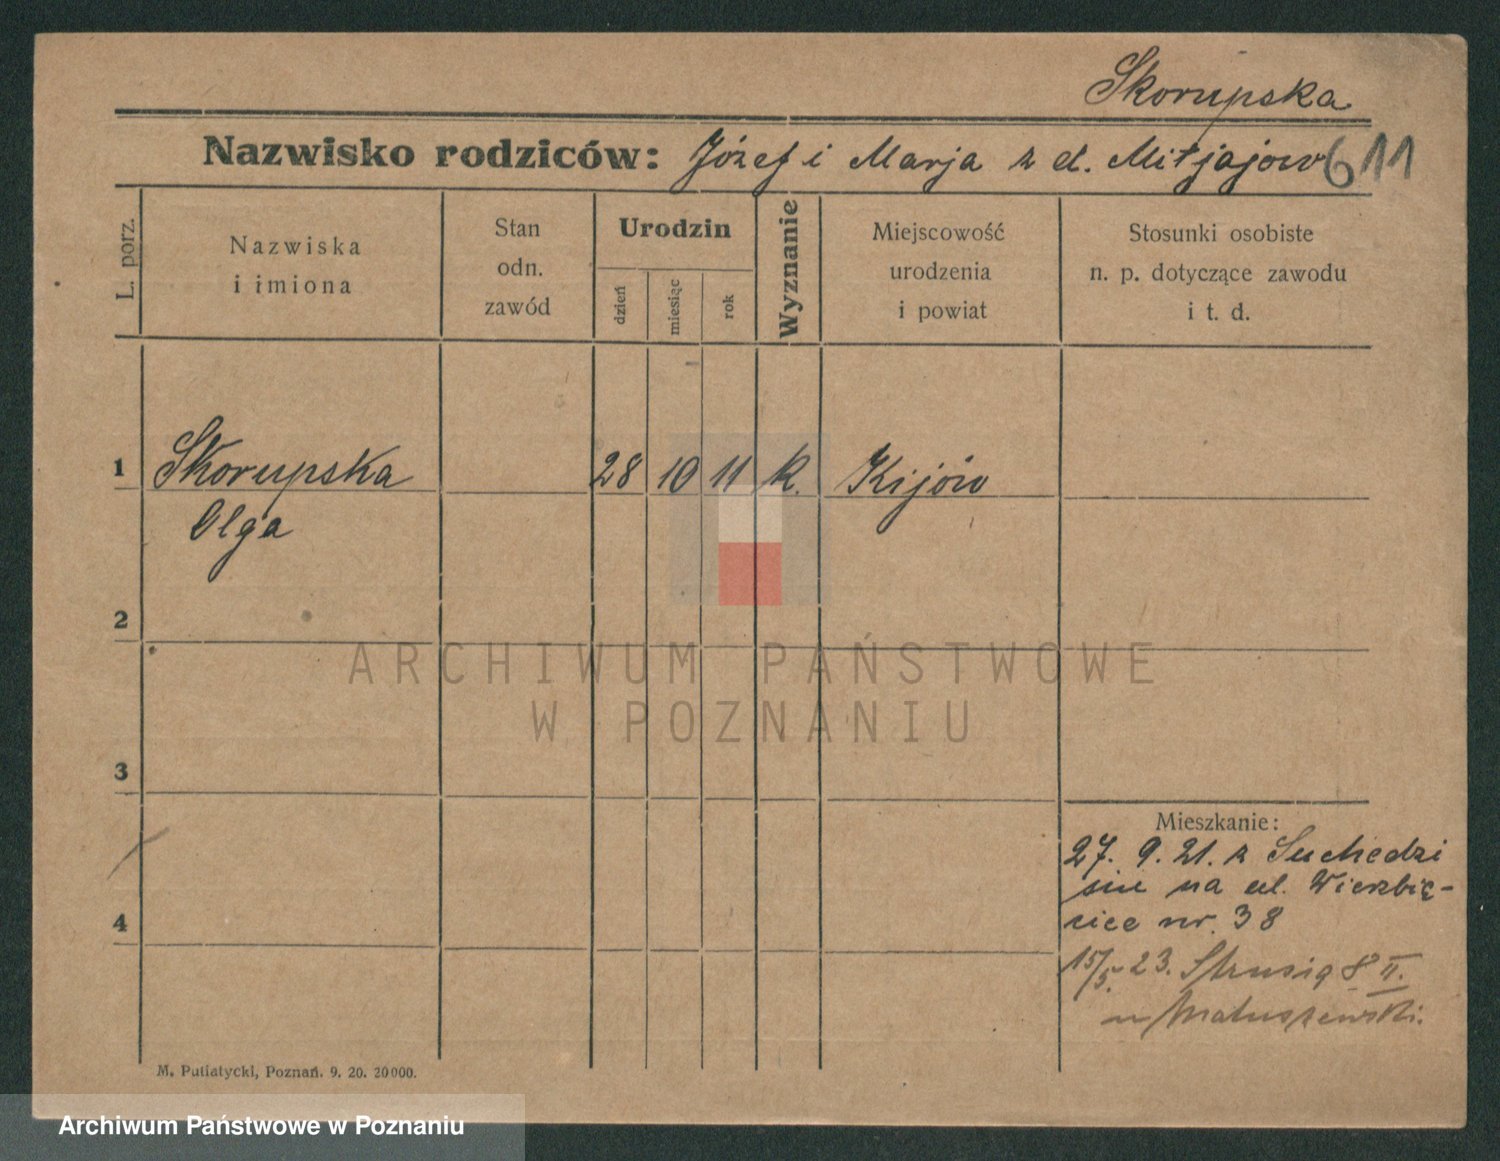 Skorupska
Nazwisko rodziców: Józef i Marja z d. Mitjajow
611
L. porz.
Nazwiska
i imiona
Stan
odn.
zawód
Urodzin
dzień
miesiąc
rok
Wyznanie
Miejscowość
urodzenia
i powiat
Stosunki osobiste
n. p. dotyczące zawodu
i t. d.
1 Skorupska 28 10 11 k. Kijów
Olga
2
ARCHIWUM PAŃSTWOWE
W POZNANIU
3
Mieszkanie:
27. 9. 21. z
na ul. Wierzbię-
cice nr. 38
15/5. 23. Strusią 8 II.
u Matuszewski.
4
M. Putiatycki, Poznań. 9. 20. 20000.
Archiwum Państwowe w Poznaniu